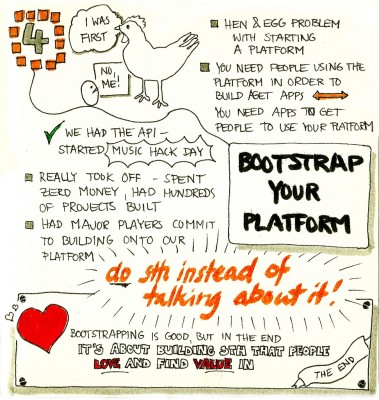 4
I WAS
FIRST
NO,
ME!
HEN & EGG PROBLEM
WITH STARTING
A PLATFORM
YOU NEED PEOPLE USING THE
PLATFORM IN ORDER TO
BUILD / GET APPS
YOU NEED APPS TO GET
PEOPLE TO USE YOUR PLATFORM
WE HAD THE API -
STARTED MUSIC HACK DAY
REALLY TOOK OFF - SPENT
ZERO MONEY, HAD HUNDREDS
OF PROJECTS BUILT
HAD MAJOR PLAYERS COMMIT
TO BUILDING ONTO OUR
PLATFORM
BOOTSTRAP
YOUR
PLATFORM
do sth instead of
talking about it!
BOOTSTRAPPING IS GOOD, BUT IN THE END
IT'S ABOUT BUILDING STH THAT PEOPLE
LOVE AND FIND VALUE IN
THE END